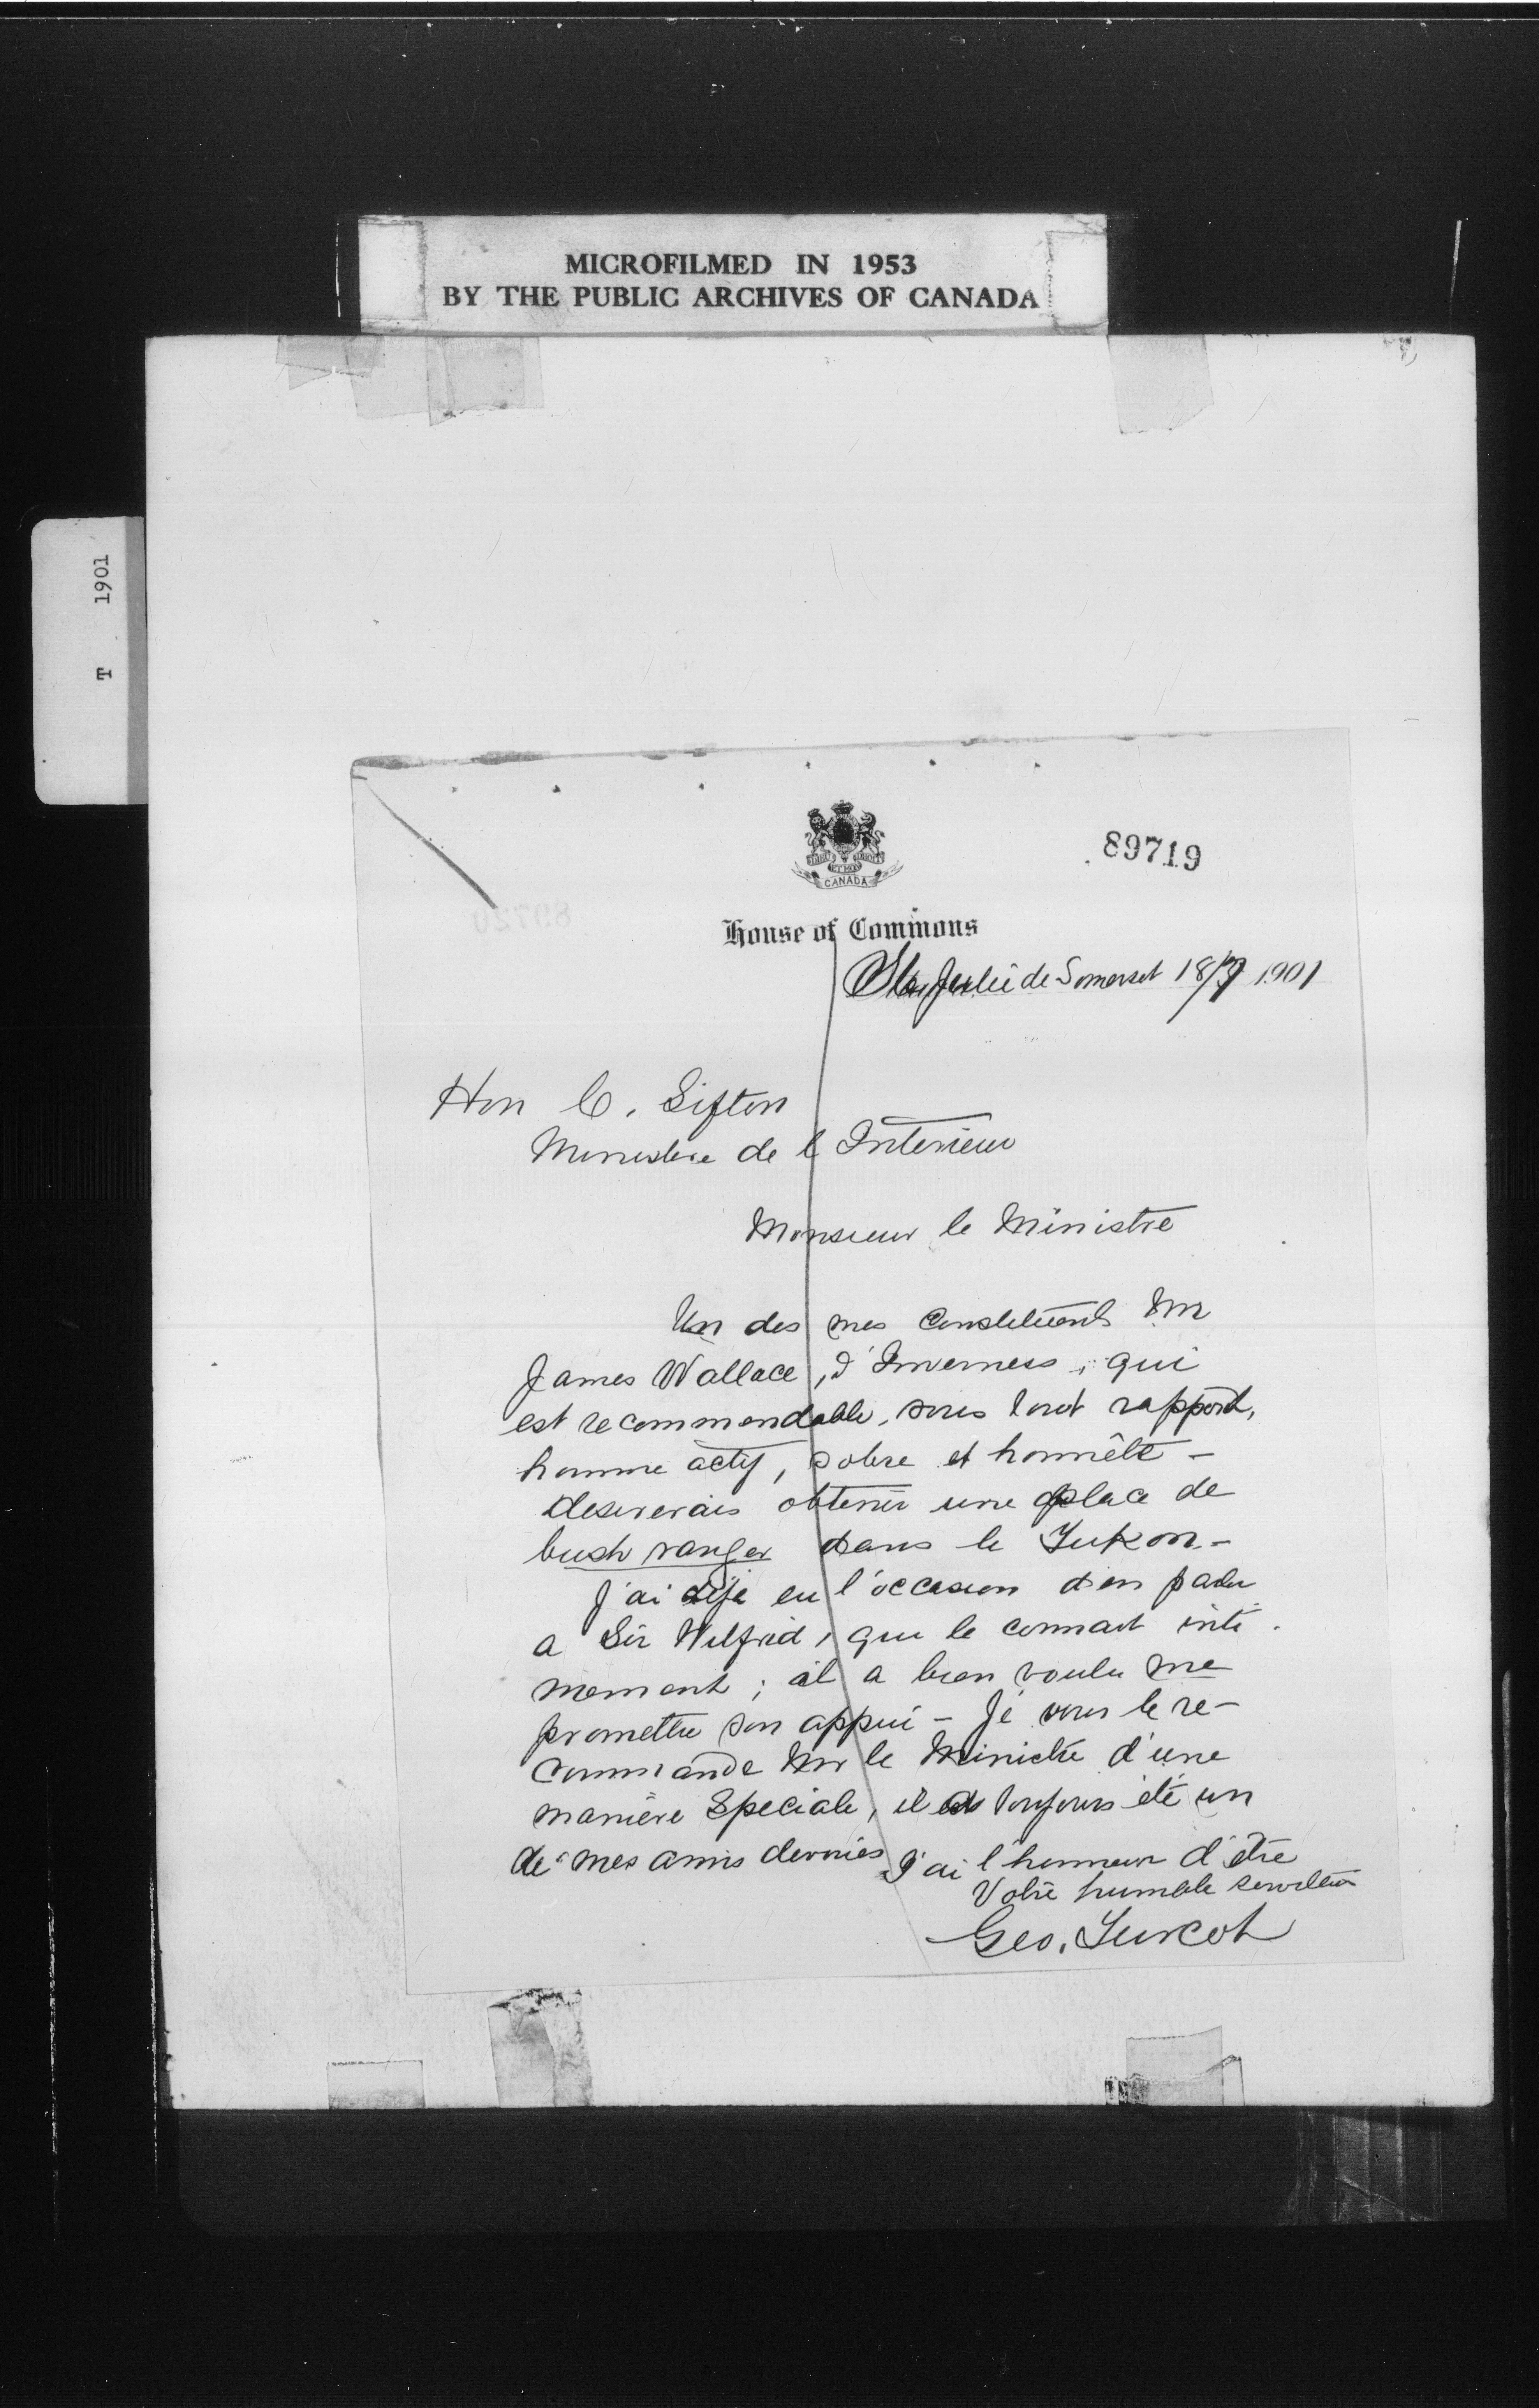 MICROFILMED IN 1953
BY THE PUBLIC ARCHIVES OF CANADA
T 1901
CANADA
89719
House of Commons
Ste Julie de Somerset 18/7 1901
Hon C. Sifton
Ministere de l Interieur
Monsieur le Ministre
Un des mes constituents Mr
James Wallace, d'Inverness, qui
est recommendable, sous tout rapport,
homme actif, sobre et honnête -
desirerais obtenir une place de
bush ranger dans le Yukon -
J'ai déja eu l'occasion d'en parler
a Sir Wilfrid, qui le connait inti-
mement ; il a bien voulu me
promettre son appui - Je vous le re-
commande Mr le Ministre d'une
manière Speciale, il a toujours été un
de mes amis devoués
J'ai l'honneur d'être
Votre humble serviteur
Geo. Turcot